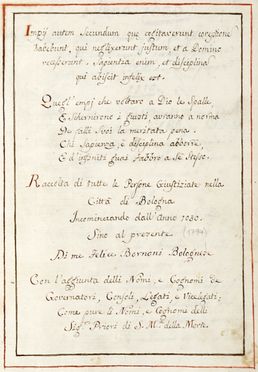 Impÿ autem secundum que cogitaverunt correptione
habebunt, qui neglexerunt justum, et a Domino
recesserunt. Sapientia enim, et disciplina
qui abiicit infelix est.
Quegl' empi che voltaro a Dio le Spalle,
E Schernirono i giusti, avranno a norma
De falli Suoi la meritata pena.
Chi Sapienza, e disciplina abborre,
E d'infiniti guai Fabbro a Se Stesso.
Raccolta di tutte le Persone Giustiziate nella
Città di Bologna
Incominciando dall'Anno 1030.
Sino al presente (1794)
Di me Felice Bornoni Bolognese
Con l'aggiunta delli Nomi, e Cognomi de
Governatori, Consoli, Legati, e Vicelegati;
Come pure li Nomi, e Cognomi delli
Sig.ri Priori di S. M.a della Morte.